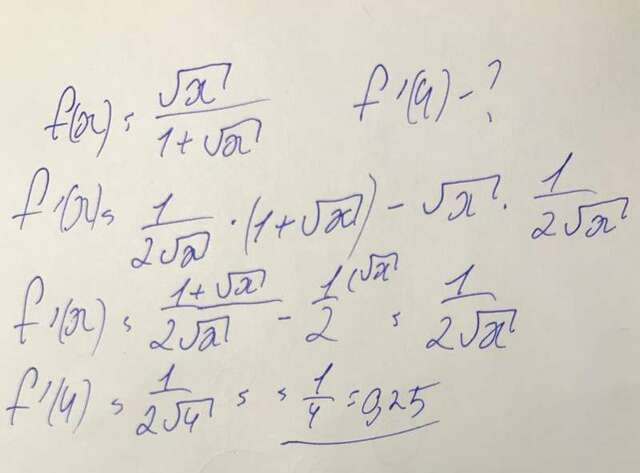 f(x) = √x / (1 + √x)    f'(4) - ?
f'(x) = 1 / (2√x) · (1 + √x) - √x · 1 / (2√x)
f'(x) = (1 + √x) / (2√x) - 1 / 2 (√x = 1 / (2√x)
f'(4) = 1 / (2√4) = = 1 / 4 = 0,25